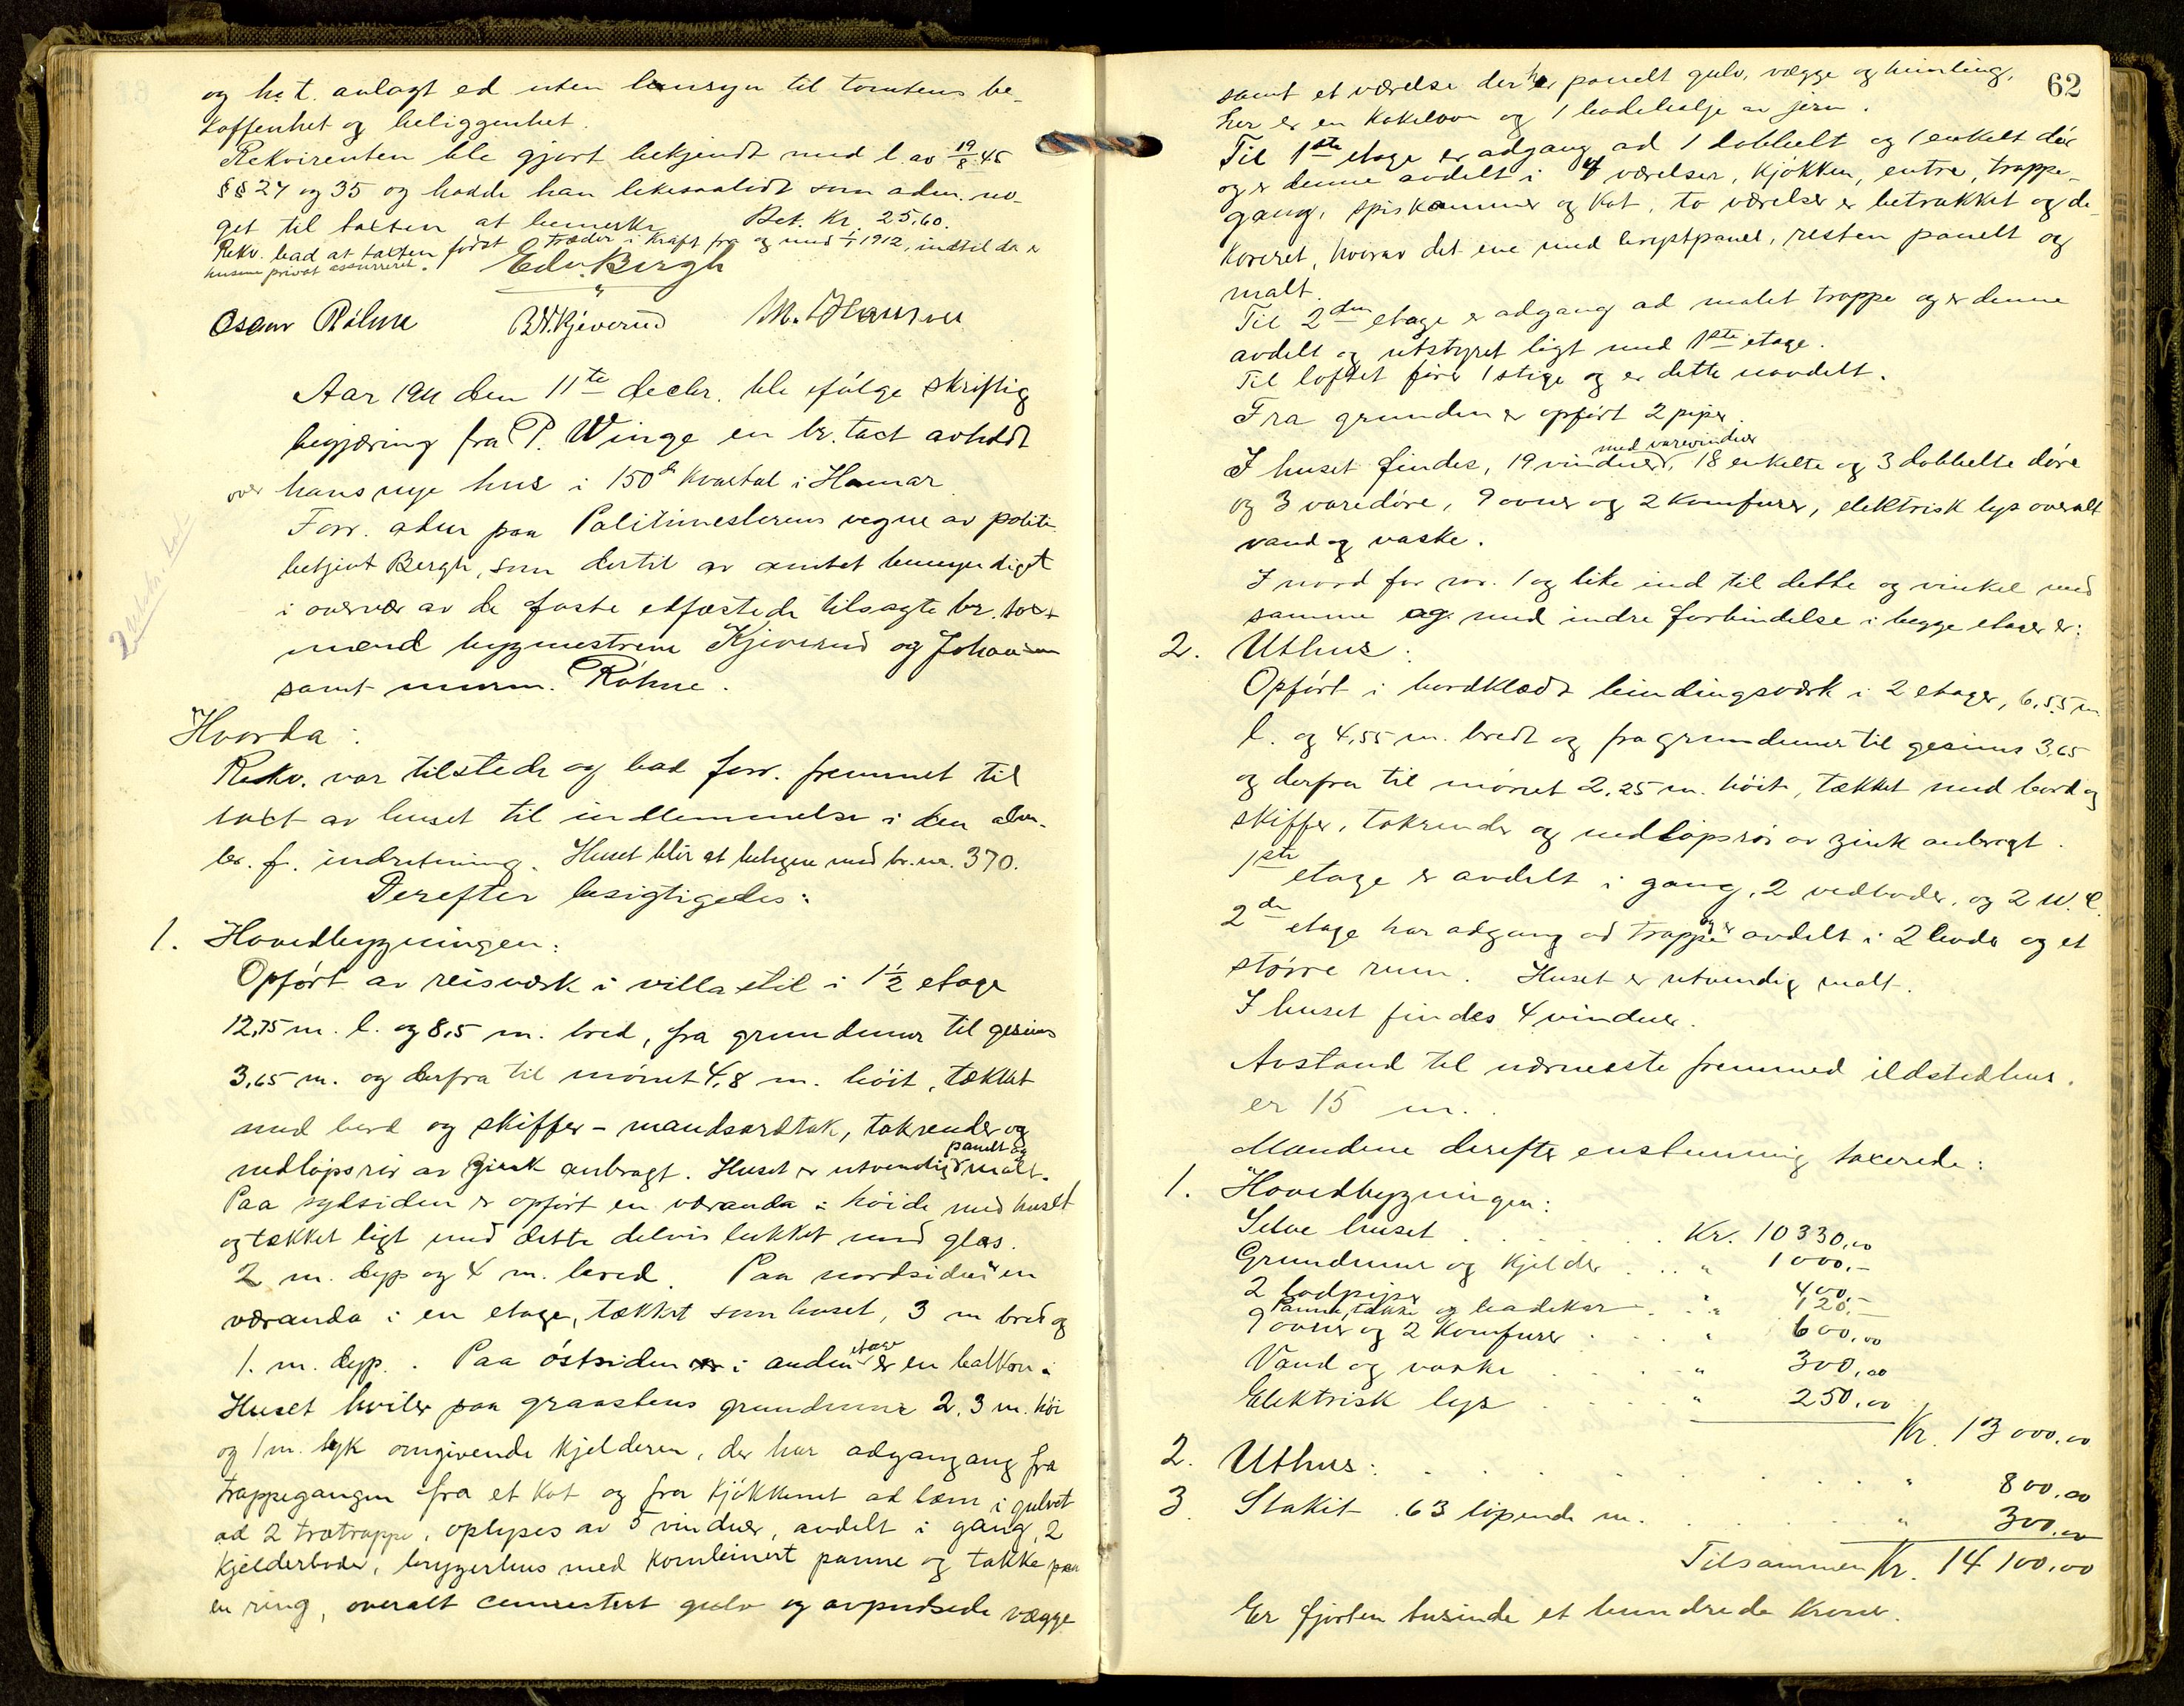 og h. t. anlagt ed uten hensyn til tomtens be-
skaffenhet og beliggenhet.
Rekvirenten ble gjort bekjendt med l. av 19/8 45
§§ 27 og 35 og hadde han likesaalidt som adm. no-
get til taxten at bemerke. Bet. Kr. 25,60.
Rekv. bad at taxten först træder i kraft fra og med 1/1 1912, indtil da er
husene privat assureret.
Edv. Bergh
Oscar Röhne B. N. Kjeverud M. Johansen
Aar 1911 den 11te decbr. ble ifölge skriftlig
begjæring fra P. Winge en br. taxt avholdt
over hans nye hus i 150de kvartal i Hamar
Forr. adm. paa Politimesterens vegne av politi-
betjent Bergh, som dertil av amtet bemyndiget
i overvær av de faste edfæstede tilsagte br. taxt-
mænd bygmestrene Kjeverud og Johansen
samt murm. Röhne.
Hvorda:
Rekv. var tilstede og bad forr. fremmet til
taxt av huset til indlemmelse i den alm.
br. f. indretning. Huset blir at betegne med br. nr. 370.
Derefter besigtigedes:
1. Hovedbygningen:
Opfört av reisverk i villastil i 1½ etage
12,75 m. l. og 8,5 m. bred, fra grundmur til gesims
3,65 m. og derfra til mönet 4,8 m. höit, tækket
med bord og skiffer - mandsardtak, takrender og
nedlöpsrör av zink anbragt. Huset er utvendig panelt og malt.
Paa sydsiden er opfört en væranda i höide med huset
og tækket ligt med dette delvis lukket med glas.
2 m. dyp og 4 m. bred. Paa nordsiden en
væranda i en etage, tækket som huset, 3 m bred og
1. m. dyp. Paa östsiden i anden etage er en balkon.
Huset hviler paa graastens grundmur 2,3 m. höi
og 1 m. tyk omgivende kjelderen, der har adgangang fra
trappegangen fra et kot og fra kjökkenet ad læm i gulvet
ad 2 trætrapper, oplyses av 5 vinduer, avdelt i gang, 2
kjelderboder, bryggerhus med kombinert panne og takke paa
en ring, overalt cementert gulv og avpudsede vægge
62
samt et værelse der har panelt gulv, vægge og himling,
her er en kakelovn og 1 badebalje av jern.
Til 1ste etage er adgang ad 1 dobbelt og 1 enkelt dör
og er denne avdelt i 4 værelser, kjökken, entre, trappe-
gang, spiskammer og kot, to værelser er betrukket og de-
koreret, hvorav det ene med brystpanel, resten panelt og
malt.
Til 2den etage er adgang ad malet trappe og er denne
avdelt og utstyret ligt med 1ste etage.
Til loftet förer 1 stige og er dette uavdelt.
Fra grunden er opfört 2 piper.
I huset findes, 19 vinduer med varevinduer, 18 enkelte og 3 dobbelte döre
og 3 varedöre, 9 ovner og 2 komfurer, elektrisk lys overalt
vand og vaske.
I nord for nr. 1 og like ind til dette og vinkel med
samme og med indre forbindelse i begge etager er:
2. Uthus:
Opfört i bordklædt bindingsverk i 2 etager, 6,55 m
l. og 4,55 m. bredt og fra grundmur til gesims 3,65
og derfra til mönet 2,25 m. höit, tækket med bord og
skiffer, takrender og nedlöpsrör av zink anbragt.
1ste etage er avdelt i gang, 2 vedboder, og 2 W.C.
2de etage har adgang ad trappe og er avdelt i 2 boder og et
större rum. Huset er utvendig malt.
I huset findes 4 vinduer.
Avstand til nærmeste fremmed ildstedhus.
er 15 m.
Mændene derefter enstemmig taxerede:
1. Hovedbygningen:
Selve huset . . . . Kr. 10330,00
Grundmur og kjelder . . . " 1000,-
2 lodpiper 400,-
Panne, takke og badekar . . " 120,-
9 ovner og 2 komfurer . . . " 600,00
Vand og vaske . . . " 300,00
Elektrisk lys . . . . " 250,00
Kr. 13000,00
2. Uthus: . . . . . . " 800,00
3. Stakit 63 löpende m. . . . . " 300,00
Tilsammen Kr. 14100,00
Er fjorten tusinde et hundrede kroner.